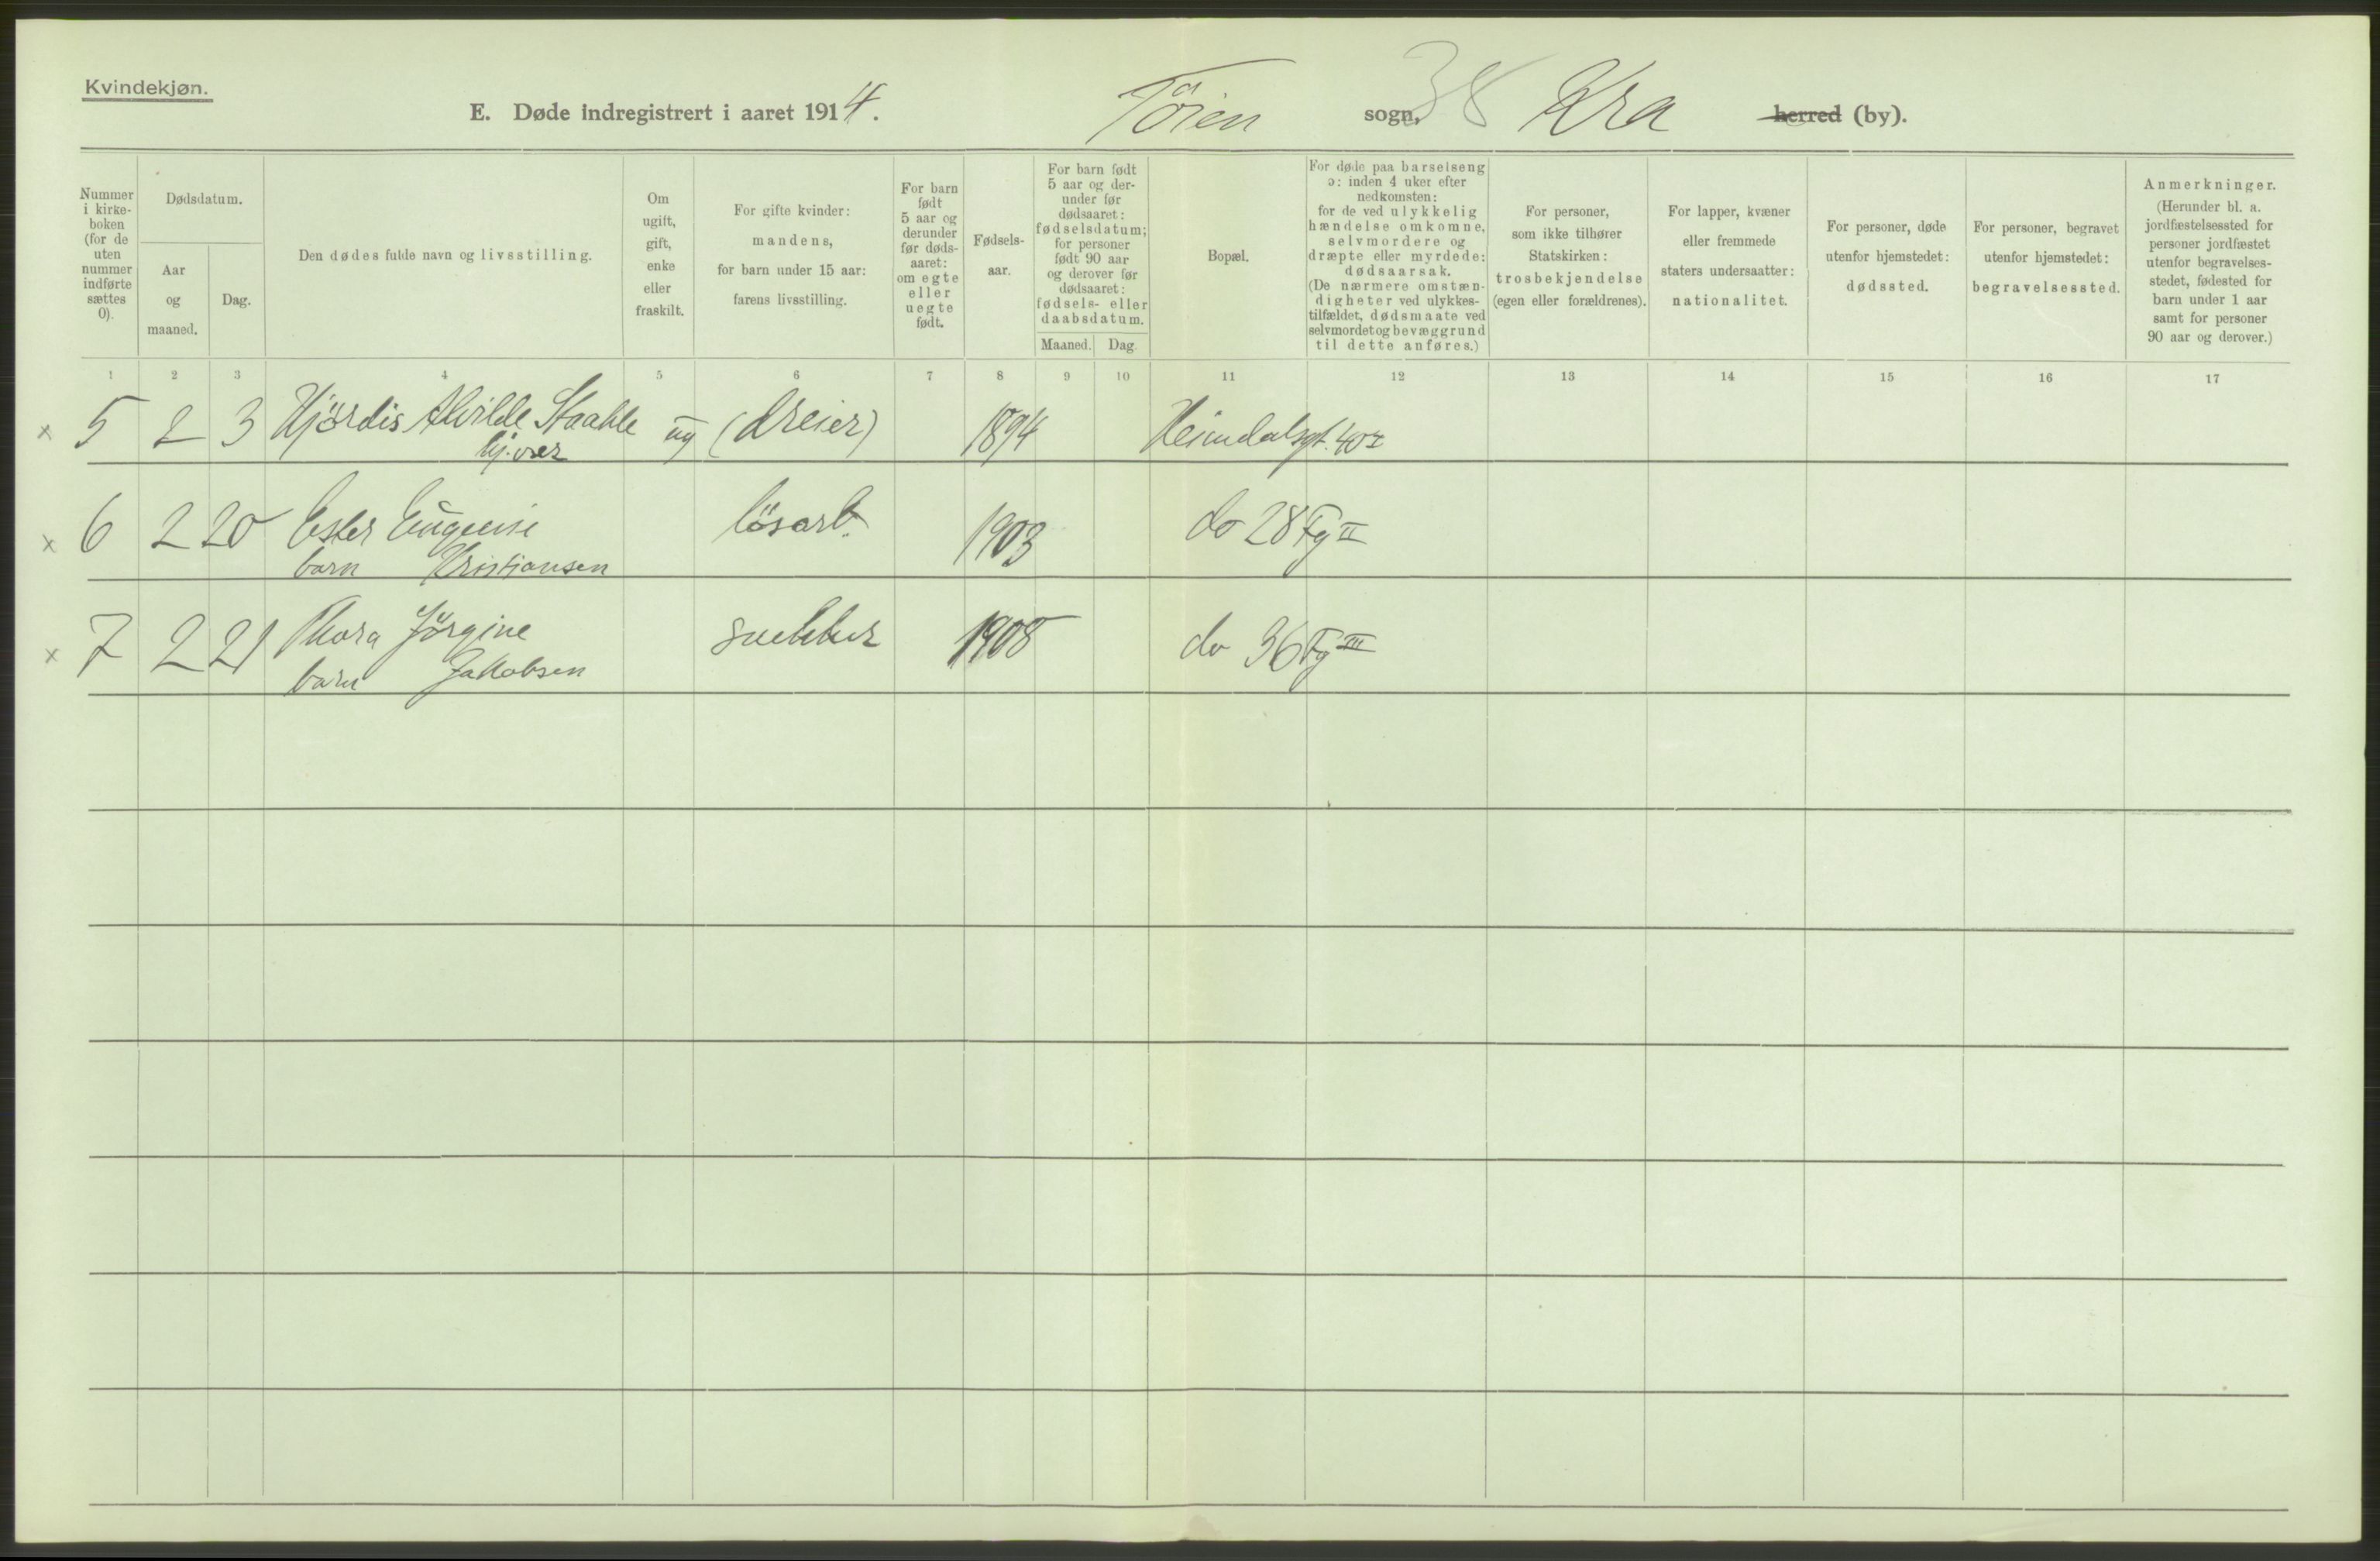 Kvindekjøn.
E. Døde indregistrert i aaret 1914. Töien sogn, 38 Kra herred (by).
Nummer i kirke-boken (for de uten nummer indførte sættes 0).
Dødsdatum.
Aar og maaned.
Dag.
Den dødes fulde navn og livsstilling.
Om ugift, gift, enke eller fraskilt.
For gifte kvinder: mandens, for barn under 15 aar: farens livsstilling.
For barn født 5 aar og derunder før døds-aaret: om egte eller uegte født.
Fødsels-aar.
For barn født 5 aar og der-under før dødsaaret: fødselsdatum; for personer født 90 aar og derover før dødsaaret: fødsels- eller daabsdatum.
Maaned. Dag.
Bopæl.
For døde paa barselseng ɔ: inden 4 uker efter nedkomsten: for de ved ulykkelig hændelse omkomne, selvmordere og dræpte eller myrdede: dødsaarsak. (De nærmere omstæn-digheter ved ulykkes-tilfældet, dødsmaate ved selvmordet og bevæggrund til dette anføres.)
For personer, som ikke tilhører Statskirken: trosbekjendelse (egen eller forældrenes).
For lapper, kvæner eller fremmede staters undersaatter: nationalitet.
For personer, døde utenfor hjemstedet: dødssted.
For personer, begravet utenfor hjemstedet: begravelsessted.
Anmerkninger. (Herunder bl. a. jordfæstelsessted for personer jordfæstet utenfor begravelses-stedet, fødested for barn under 1 aar samt for personer 90 aar og derover.)
1 2 3 4 5 6 7 8 9 10 11 12 13 14 15 16 17
x 5 2 3 Hjördis Alvilde Staahle ug (dreier) 1894 Heimdalsgt. 40 I
x 6 2 20 Ester Eugenie lösarb. 1903 do 28 Fg II
barn Kristiansen
x 7 2 21 Thora Jörgine snekker 1908 do 36 Fg III
barn Jakobsen